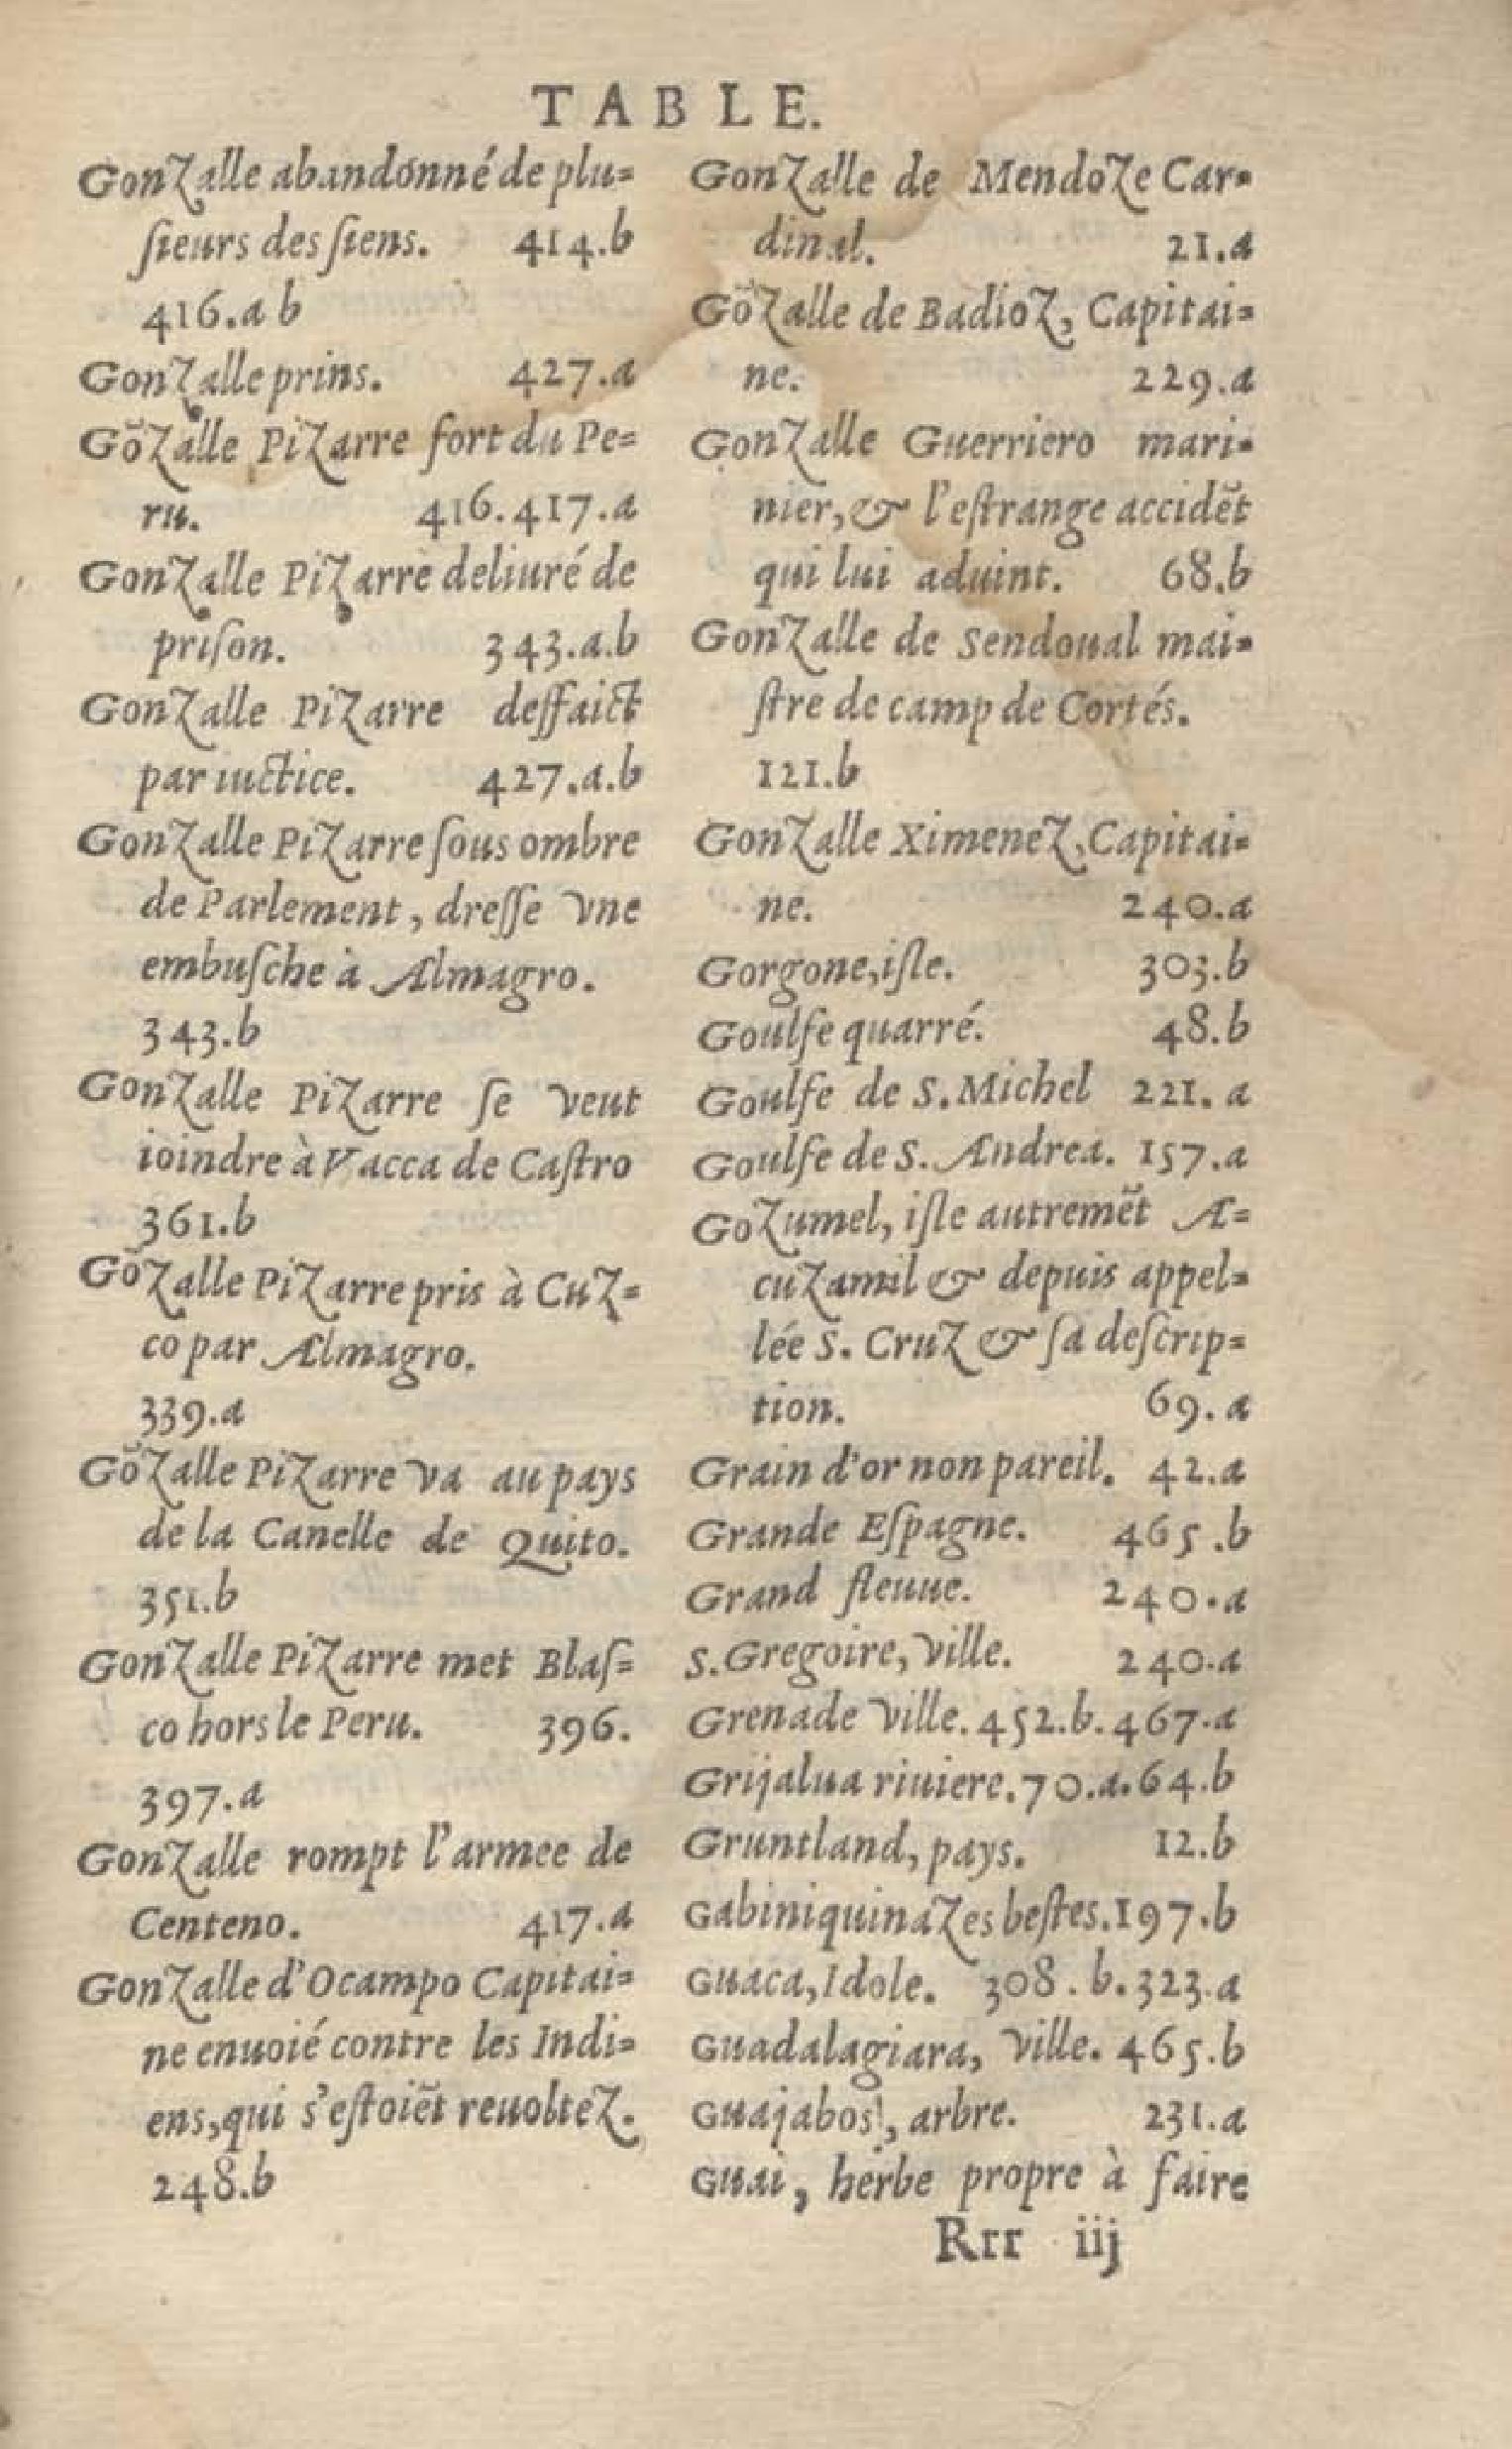 TABLE.
Gonzalle abandonné de plu=
ſieurs des ſiens. 414.b
416.a b
Gonzalle prins. 427.a
Gõzalle Pizarre fort du Pe=
ru. 416.417.a
Gonzalle Pizarre deliuré de
priſon. 343.a.b
Gonzalle Pizarre deffaict
par iuctice. 427.a.b
Gonzalle Pizarre ſous ombre
de Parlement, dreſſe vne
embuſche à Almagro.
343.b
Gonzalle Pizarre ſe veut
ioindre à Vacca de Caſtro
361.b
Gõzalle Pizarre pris à Cuz=
co par Almagro.
339.a
Gõzalle Pizarre va au pays
de la Canelle de Quito.
351.b
Gonzalle Pizarre met Blaſ=
co hors le Peru. 396.
397.a
Gonzalle rompt l'armee de
Centeno. 417.a
Gonzalle d'Ocampo Capitai=
ne enuoié contre les Indi=
ens, qui s'eſtoiẽt reuoltez.
248.b
Gonzalle de Mendoze Car=
dinal. 21.a
Gõzalle de Badioz, Capitai=
ne. 229.a
Gonzalle Guerriero mari=
nier, & l'eſtrange accidẽt
qui lui aduint. 68.b
Gonzalle de Sendoual mai=
ſtre de camp de Cortés.
121.b
Gonzalle Ximenez, Capitai=
ne. 240.a
Gorgone, iſle. 303.b
Goulfe quarré. 48.b
Goulfe de S. Michel 221. a
Goulfe de S. Andrea. 157.a
Gozumel, iſle autremẽt A=
cuzamil & depuis appel=
lée S. Cruz & ſa deſcrip=
tion. 69. a
Grain d'or non pareil. 42.a
Grande Eſpagne. 465.b
Grand fleuue. 240.a
S. Gregoire, ville. 240.a
Grenade ville. 452.b. 467.a
Grijalua riuiere. 70.a. 64.b
Gruntland, pays. 12.b
Gabiniquinazes beſtes. 197.b
Guaca, Idole. 308. b. 323.a
Guadalagiara, ville. 465.b
Guajabos, arbre. 231.a
Guai, herbe propre à faire
Rrr iij